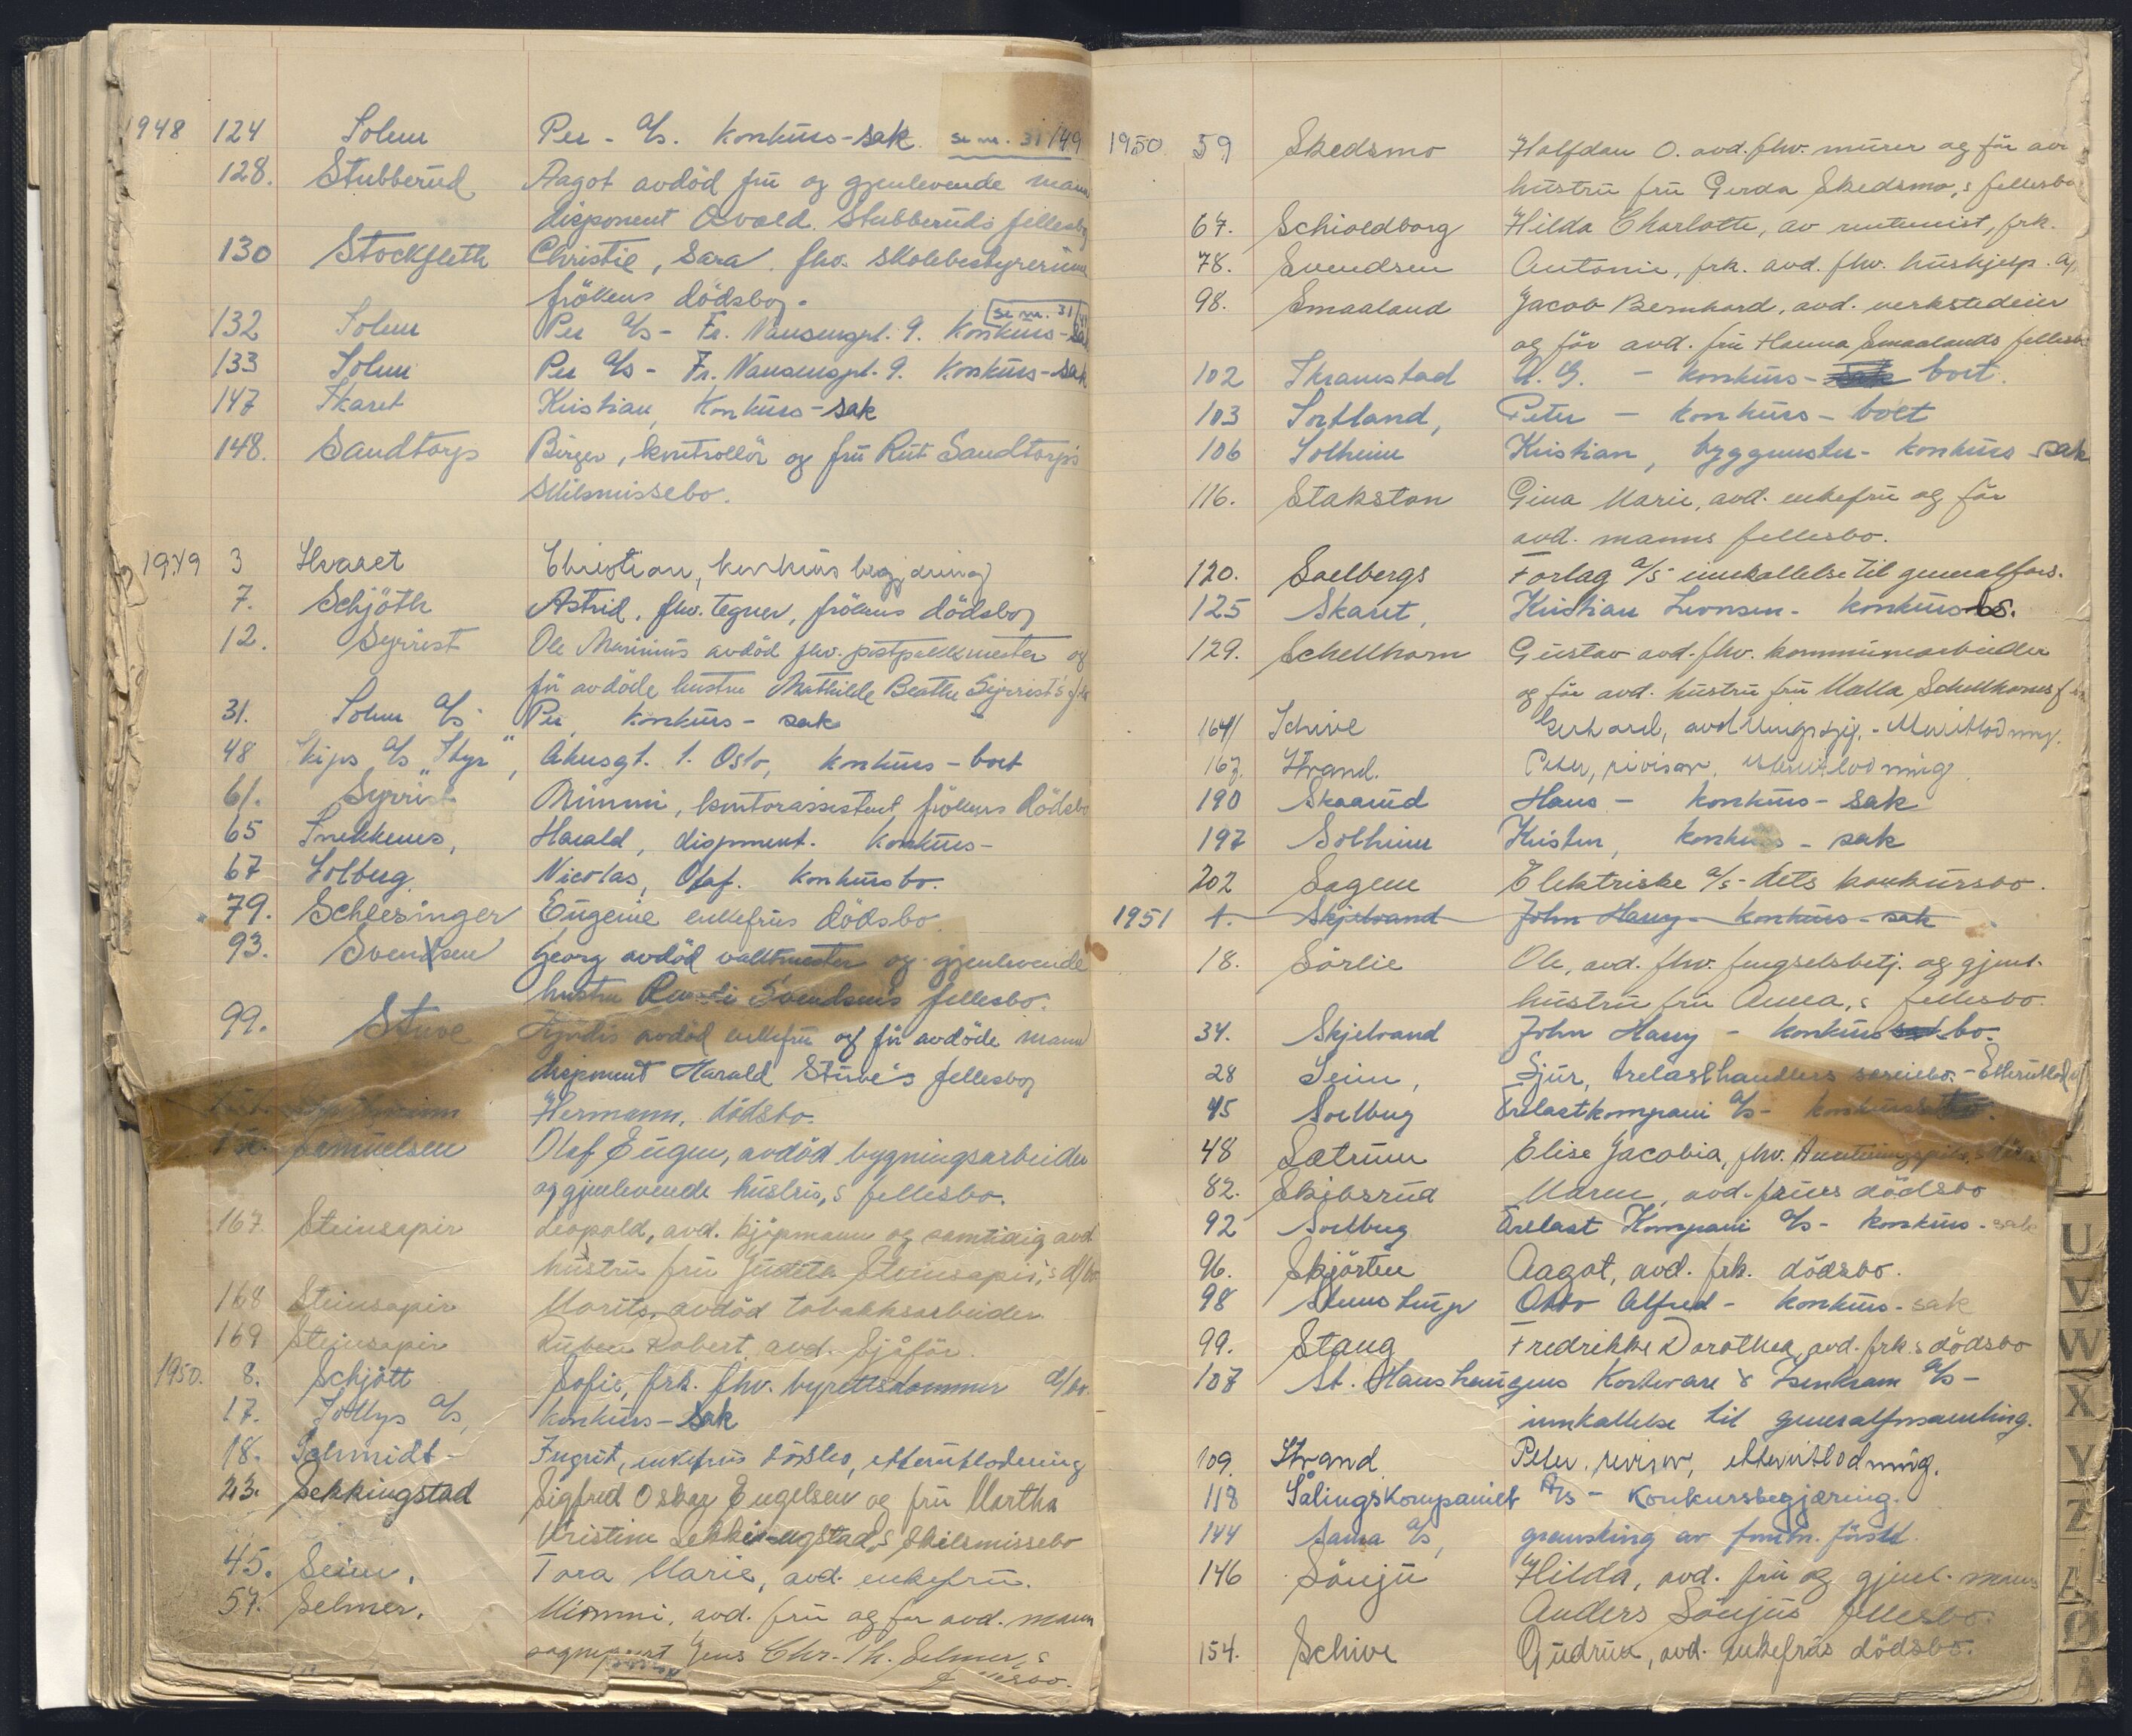 1948 124 Solum Per - A/s. konkurs-sak. se nr. 31/49
128. Stubberud Aagot avdöd fru og gjenlevende mann
disponent Osvald Stubberuds fellesbo
130 Stockfleth Christie, Sara. fhv. skolebestyrerinne
frökens dödsbo.
132 Solum Per A/s - Fr. Nansenspl. 9. Konkurs-sak se nr. 31/49
133 Solum Per A/s - Fr. Nansenspl. 9. Konkurs-sak
147 Skaret Kristian, Konkurs-sak
148. Sandtorps Birger, kontrollör og fru Rut Sandtorps
skilsmissebo.
1949 3 Skaret Christian, konkurs begjæring
7. Schjöth Astrid, fhv. tegner, frökens dödsbo
12. Syrrist Ole Marinius avdöd fhv. postpakkmester og
för avdöde hustru Mathilde Beathe Syrrist's
31. Solum A/s Per, konkurs-sak
48 Skips A/s "Styr", Akersgt. 1. Oslo, konkurs-boet
61. Syrrist Mimmi, kontorassistent, frökens dödsbo
65 Snekkenes, Harald, disponent. Konkurs-
67 Solberg. Nicolas, Olaf. Konkursbo.
79. Schlesinger Eugenie enkefrus dödsbo.
93. Svendsen Georg avdöd vaktmester og gjenlevende
hustru Svendsens fellesbo.
99. Stuve Hjördis avdöd enkefru og för avdöde mann
disponent Harald Stuve's fellesbo
Hermann, dödsbo.
Samuelsen Olaf Eugen, avdöd bygningsarbeider
og gjenlevende hustrus, s fellesbo.
167. Steinsapir Leopold, avd. kjöpmann og samtidig avd.
hustru fru Judith Steinsapir, s d/bo
168 Steinsapir Moritz, avdöd tobakksarbeider
169 Steinsapir Ruben Robert, avd. Sjåför.
1950. 8. Schjött Sofie, frk. fhv. byrettsdommer d/bo.
17. Sollys A/s, konkurs-sak
18. Schmidt - Ingrit, enkefrus dödsbo, etterutlodning
23. Sekkingstad Sigfred Oskar Engelsen og fru Martha
Kristine Sekkingstad, s skilsmissebo
45. Seim. Tora Marie, avd. enkefru.
57. Selmer. Mimmi, avd. fru og for avd. mann
Jens Chr. Th. Selmer, s
fellesbo.
1950 59 Skedsmo Halfdan O. avd. fhv. murer og för avd.
hustru fru Gerda Skedsmo, s fellesbo
67. Schioldborg Hilda Charlotte, av rentenist, frk.
78. Svendsen Antonie, frk. avd. fhv. hushjelp.
98. Smaaland Jacob Bernhard, avd. verkstedeier
og för avd. fru Hanna Smaalands fellesbo
102 Skramstad A. G. - konkurs-sak boet.
103 Sortland, Peter - konkurs-boet
106 Solheim Kristian, byggmester - konkurs-sak
116. Stakston Gina Marie, avd. enkefru og för
avd. manns fellesbo.
120. Solbergs Forlag A/s innkallelse til generalfors.
125 Skaret, Kristian Leonsen - konkursbo.
129. Schellhorn Gustav avd. fhv. kommunearbeider
og för avd. hustru fru Malla Schellhorns
164/ Schive Gerhard, avdelingssjef, - Merutlodning.
167. Strand. Peter, revisor, Merutlodning
190 Skaarud Hans - konkurs-sak
197 Solheim Kristen, konkurs-sak
202 Sagene Elektriske A/s - dets konkursbo.
1951 1. Skjelvand John Harry - konkurs-sak
18. Sörlie Ole, avd. fhv. fengselsbetj. og gjenl.
hustru fru Anna, s fellesbo.
34. Skjelvand John Harry - konkurs sak bo.
28 Seim, Sjur, trelasthandlers særeiebo. - Etterutlodn.
45 Solberg Trelastkompani A/s -
48 Sætrum Elise Jacobia, fhv.
82. Skibsrud Maren, avd. frues dödsbo
92 Solberg Trelast Kompani A/s - konkurs-sak
96. Skjörten Aagot, avd. frk. dödsbo.
98 Stenstrup Otto Alfred - konkurs-sak
99. Stang Fredrikke Dorothea, avd. frk. s dödsbo
107 St. Hanshaugens Kortevare & Isenkram A/s -
innkallelse til generalforsamling.
109. Strand. Peter. revisor, etterutlodning.
118 Sålingskompaniet A/s - Konkursbegjæring.
144 Sama A/s, gransking av forretn. försel.
146 Sönju Hilda, avd. fru og gjenl. manns
Anders Sönjus fellesbo.
154. Schive Gudrun, avd. enkefrus dödsbo.
U
V
W
X
Y
Z
Æ
Ø
Å